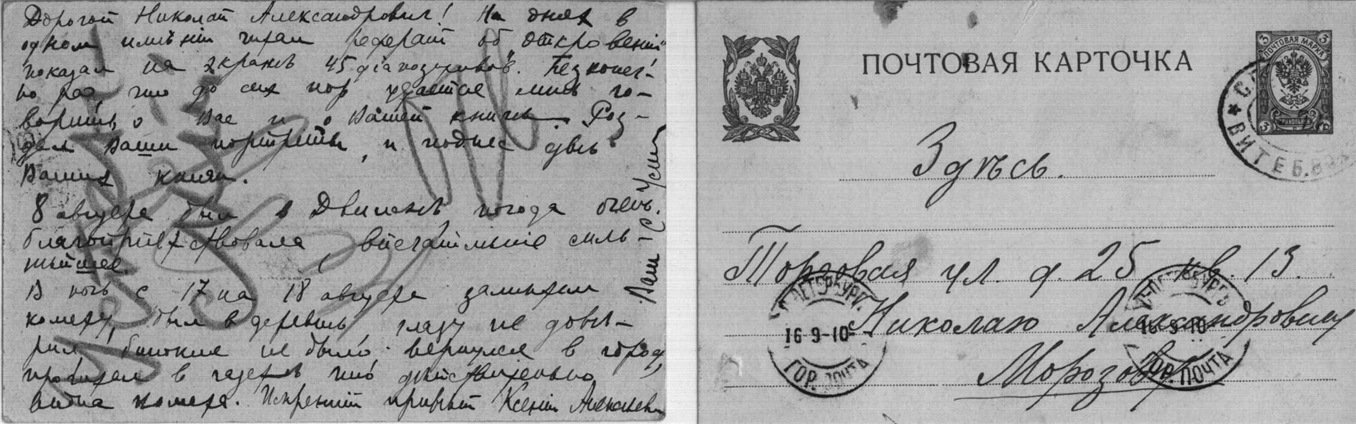 Дорогой Николай Александрович! На днях в
одном имѣніи читал реферат об „Откровеніи"
показал на экранѣ 45 діапозитивов. Безконеч-
но рад что до сих пор удается мнѣ го-
ворить о Вас и о Вашей книгѣ. Роз-
дал Ваши портреты, и поднес двѣ
Ваших книги.
8 августа был в Двинскѣ погода очень
благопріятствовала, впечатлѣніе силь-
нѣйшее
В ночь с 17 на 18 августа замѣтил
комету, был в деревнѣ глазу не довѣ-
рил, бинокля не было. вернулся в город,
прочитал в газетѣ что дѣйствительно
видна комета. Искренній привѣт Ксеніи Алексѣевнѣ
Ваш С.
ПОЧТОВАЯ КАРТОЧКА
ПОЧТОВАЯ МАРКА
3 3
ВИТЕБ.
Здѣсь.
Торговая ул. д. 25 кв. 13.
Николаю Александровичу
Морозову
С.ПЕТЕРБУРГЪ
16-9-10
ГОР. ПОЧТА
С.ПЕТЕРБУРГЪ
16-9-10
ГОР. ПОЧТА